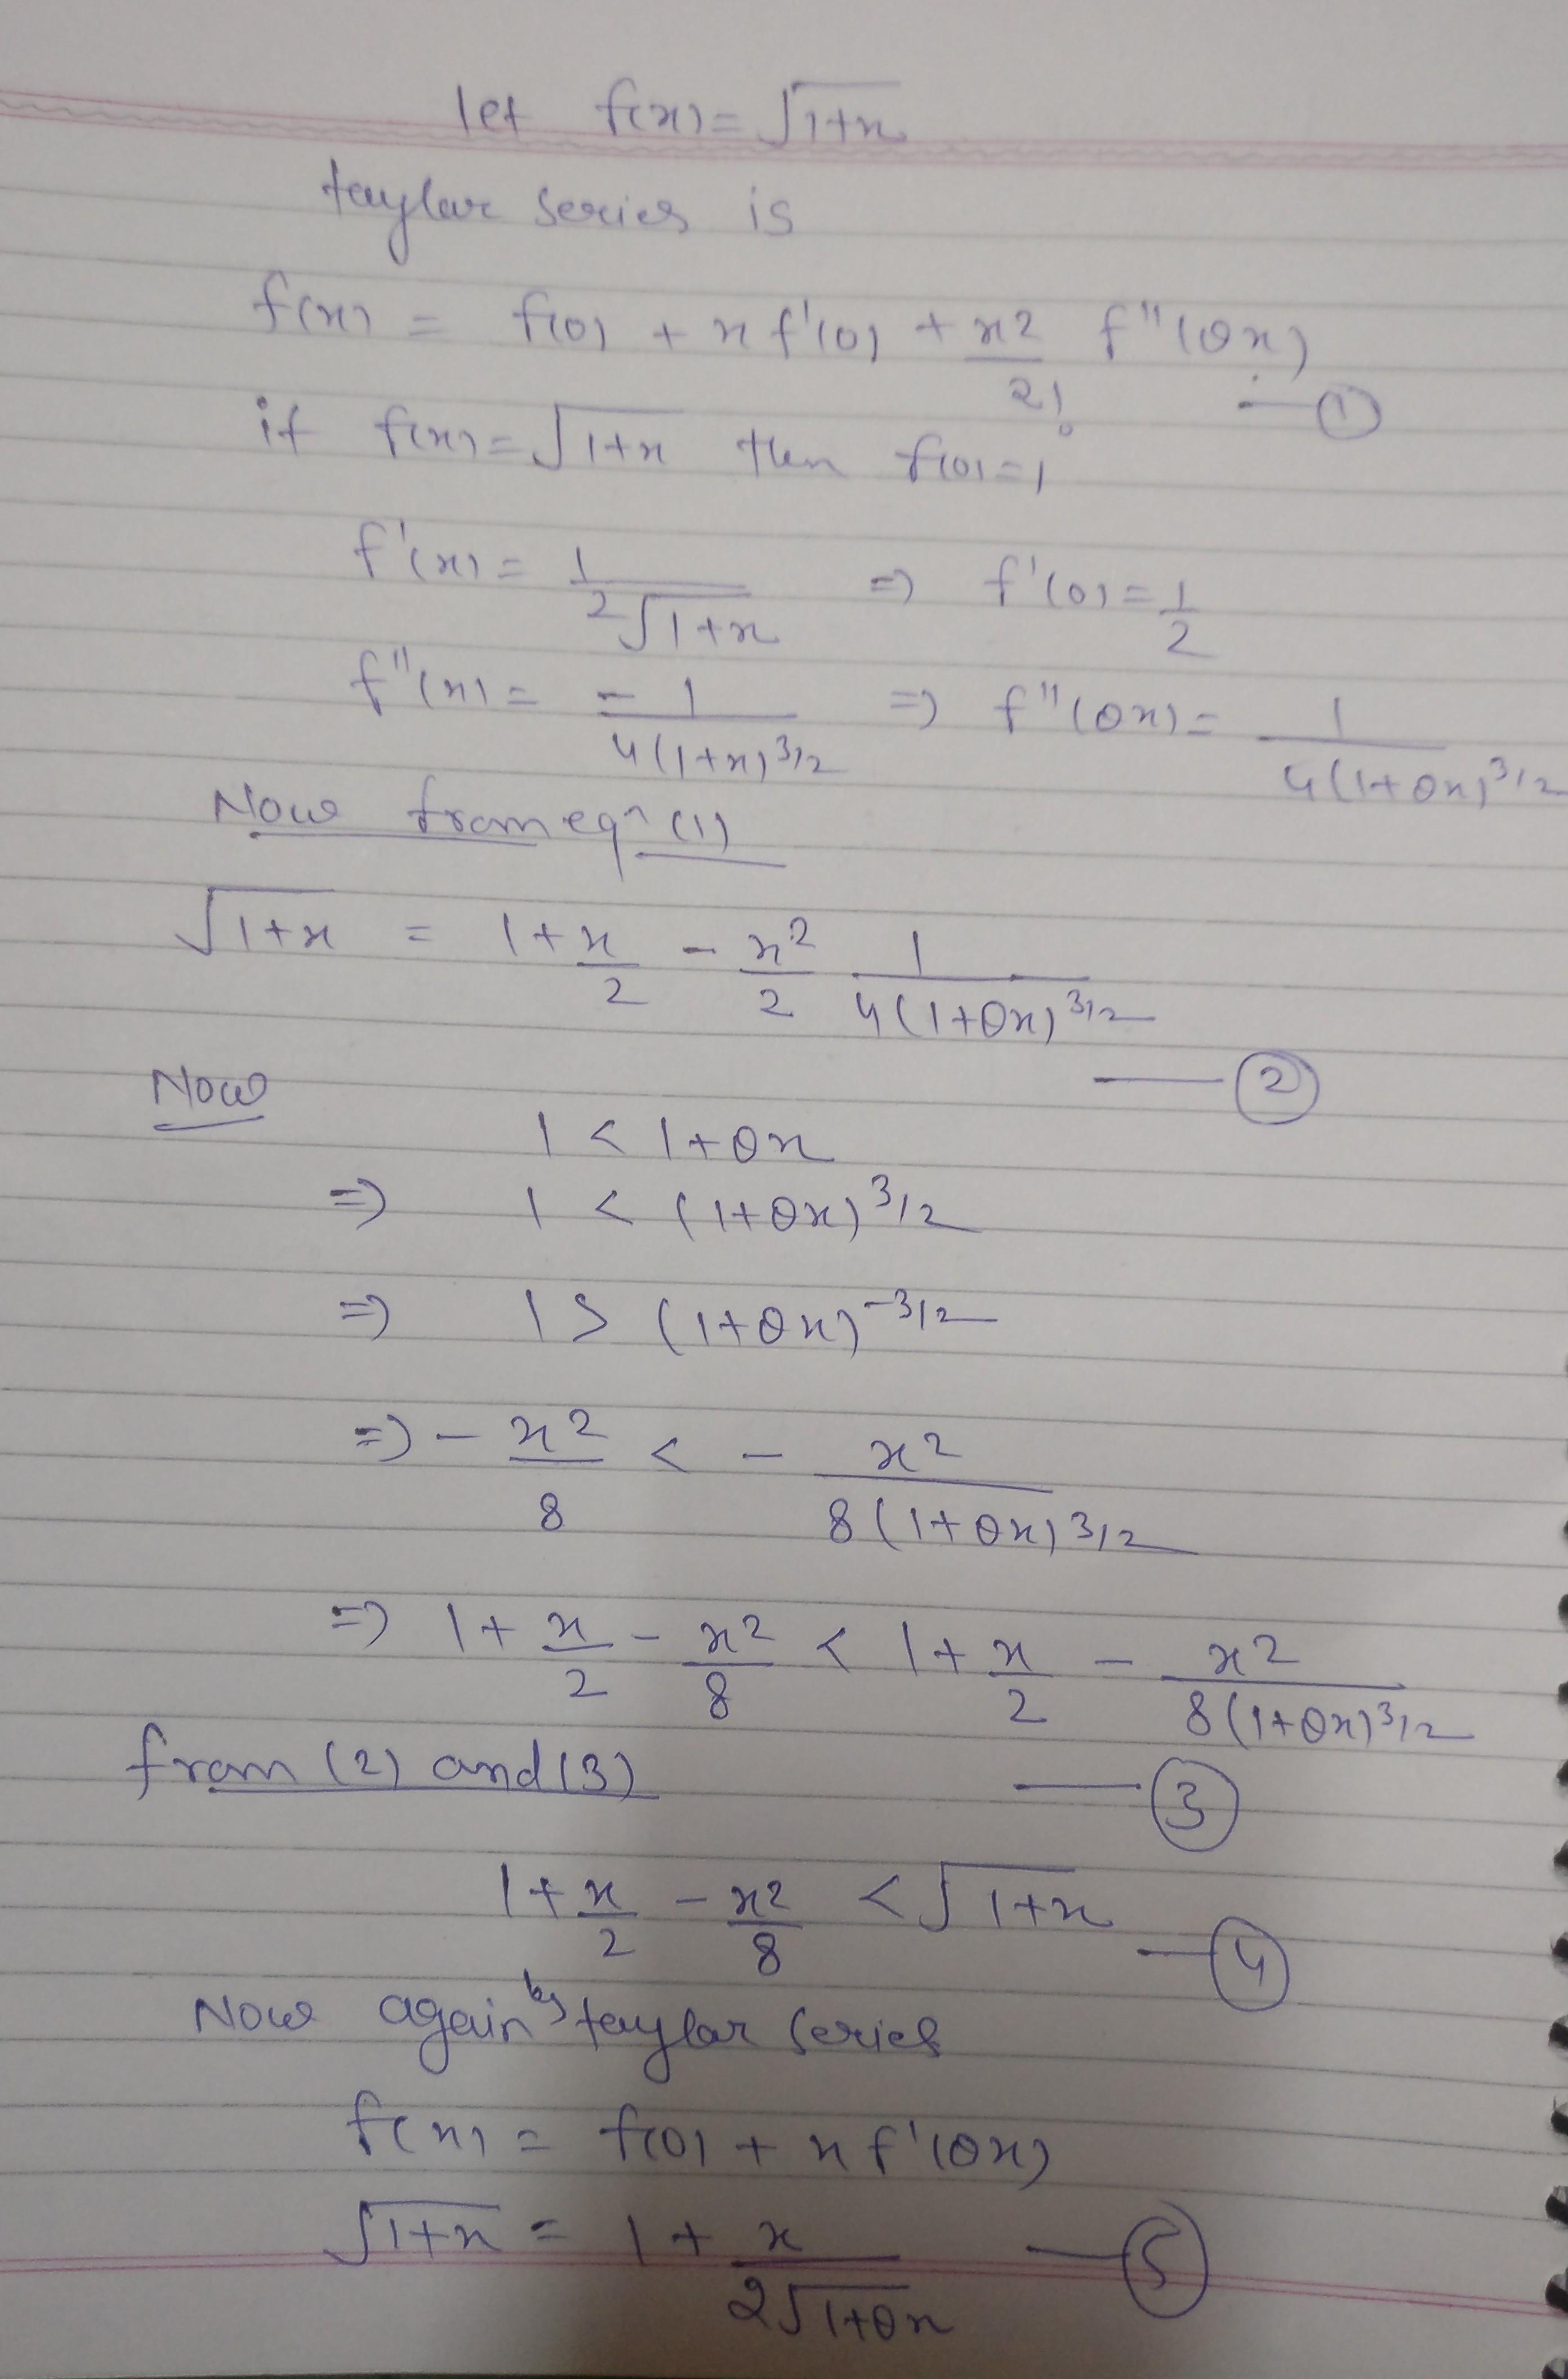 let f(x) = √1+x
taylar series is
f(x) = f(0) + x f'(0) + x²/2! f''(θx) —①
if f(x) = √1+x then f(0) = 1
f'(x) = 1/2√1+x ⇒ f'(0) = 1/2
f''(x) = -1/4(1+x)^3/2 ⇒ f''(θx) = 1/4(1+θx)^3/2
Now from eqⁿ (1)
√1+x = 1 + x/2 - x²/2 1/4(1+θx)^3/2
—②
Now
1 < 1+θx
⇒ 1 < (1+θx)^3/2
⇒ 1 > (1+θx)^-3/2
⇒ - x²/8 < - x²/8(1+θx)^3/2
⇒ 1 + x/2 - x²/8 < 1 + x/2 - x²/8(1+θx)^3/2
from (2) and (3) —③
1 + x/2 - x²/8 < √1+x —④
Now again by taylar series
f(x) = f(0) + x f'(θx)
√1+x = 1 + x/2√1+θx —⑤